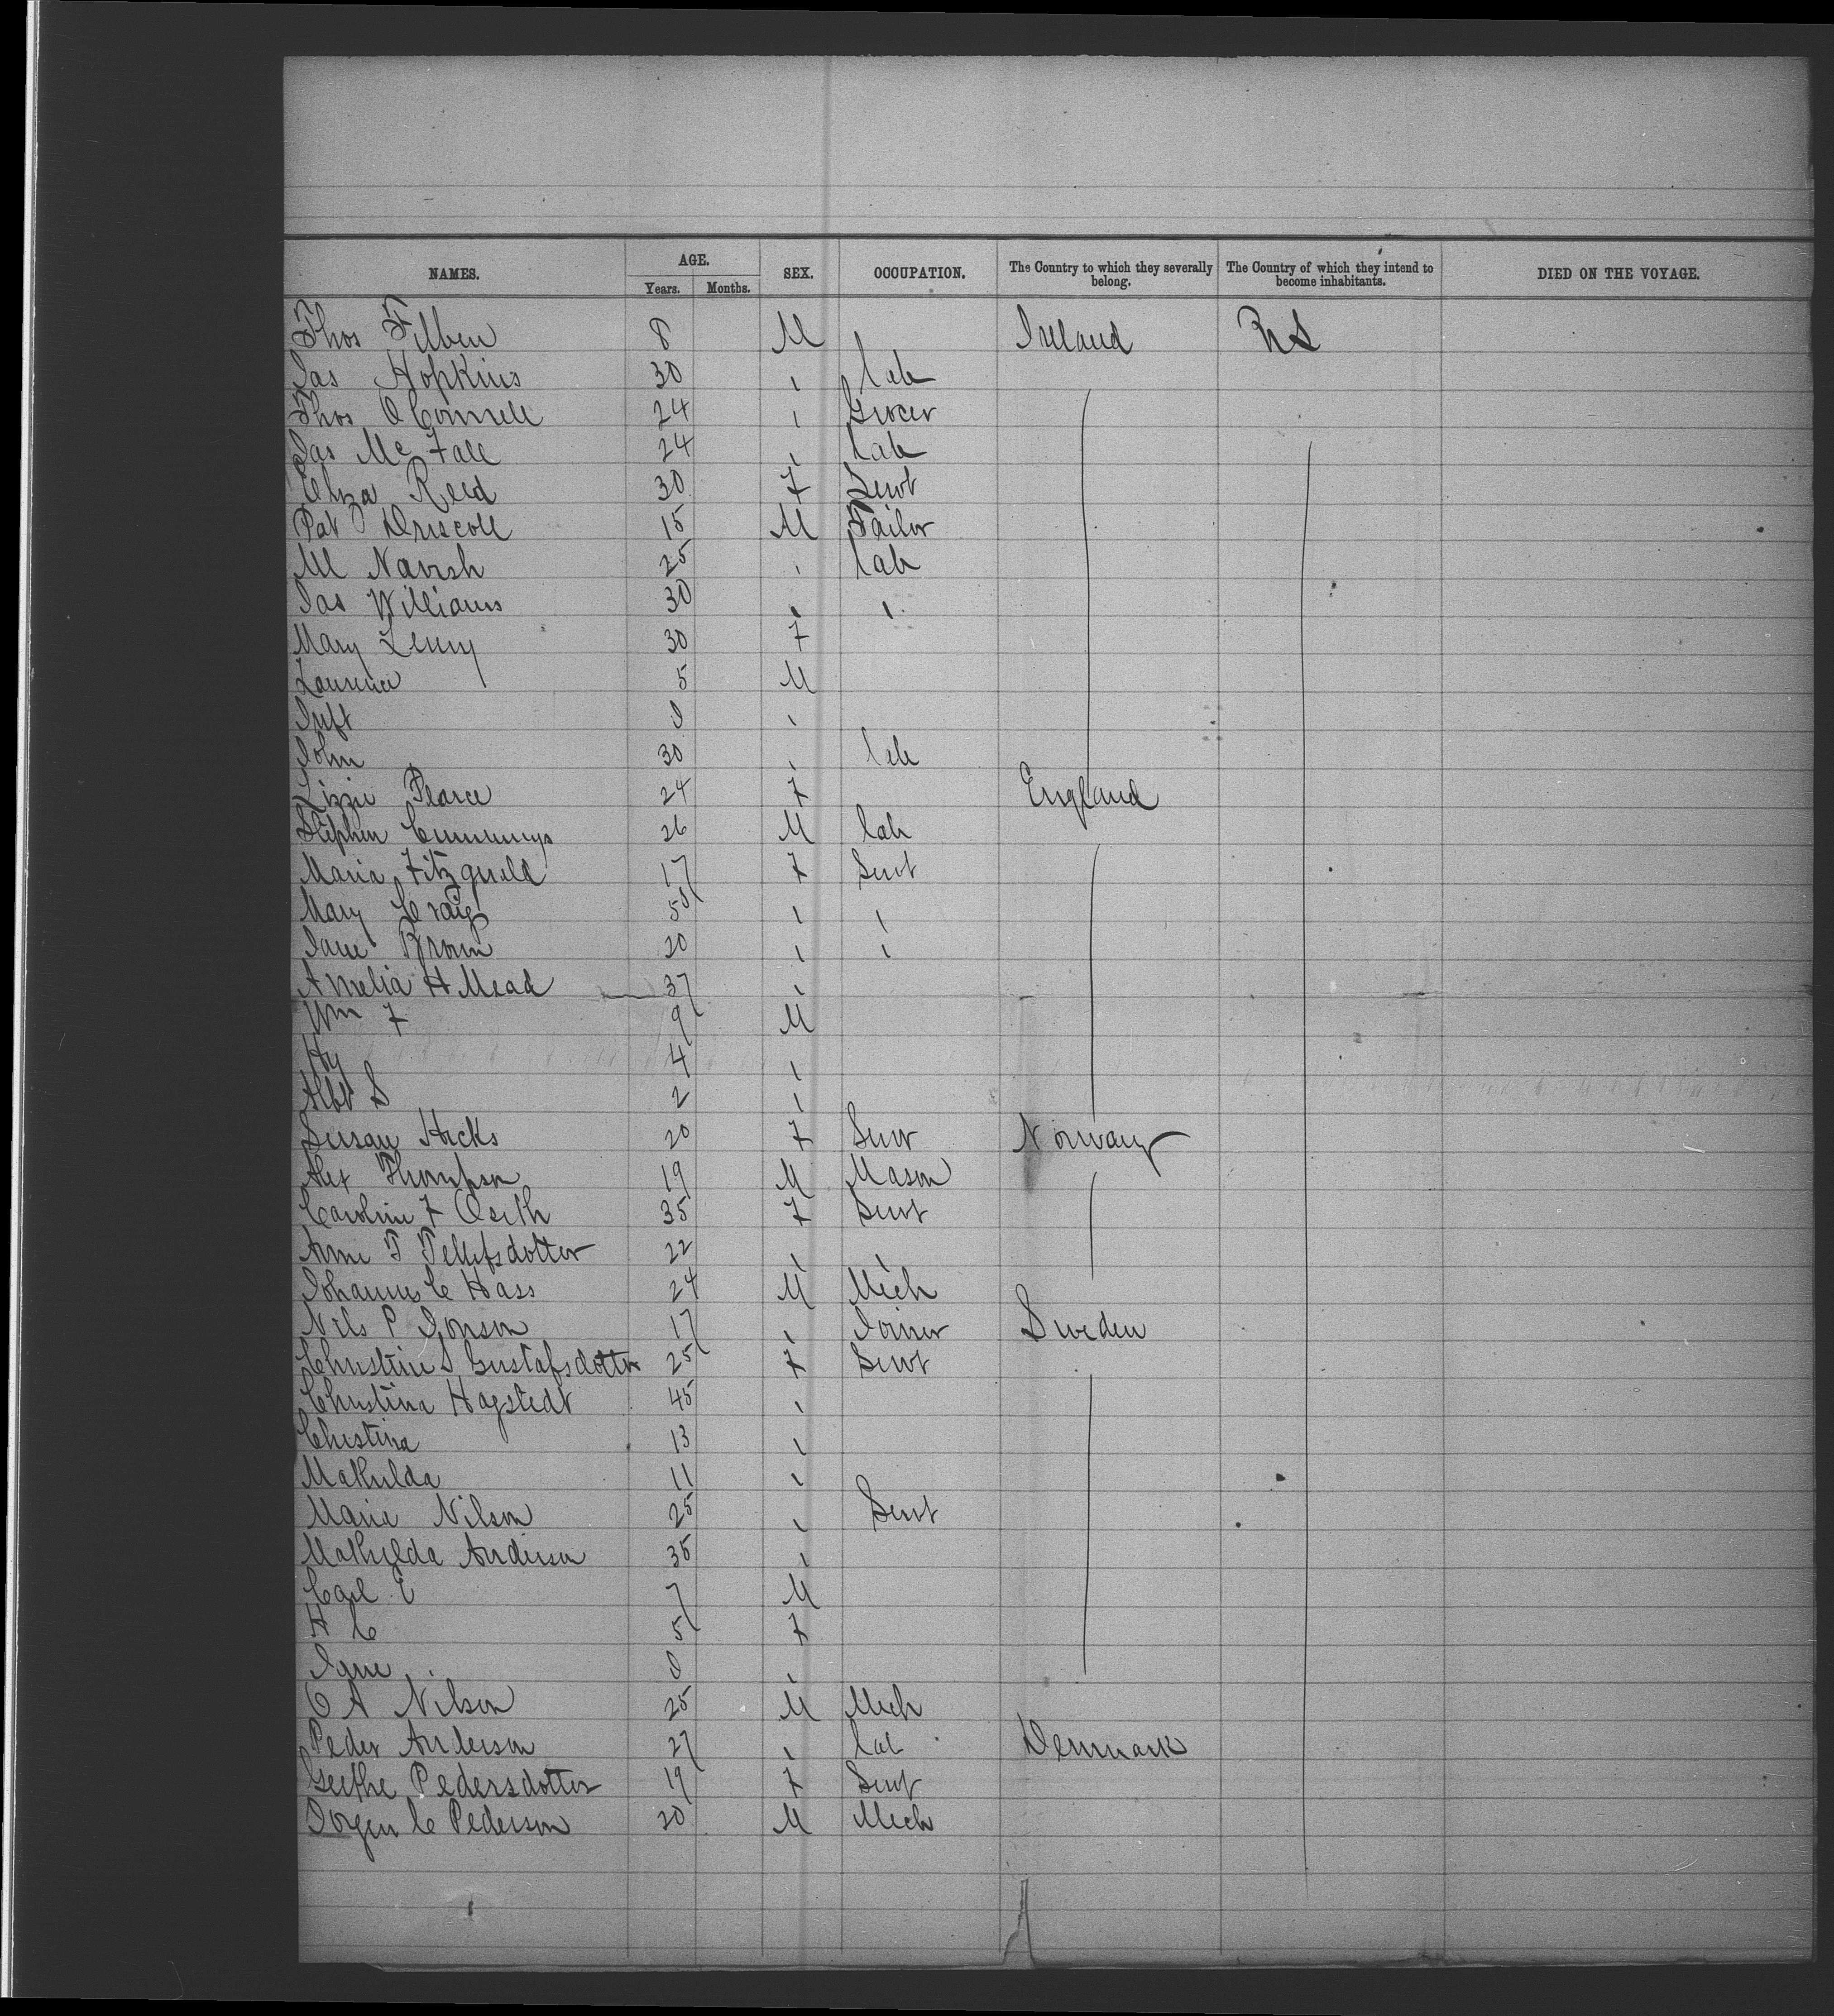 NAMES. AGE. Years. Months. SEX. OCCUPATION. The Country to which they severally belong. The Country of which they intend to become inhabitants. DIED ON THE VOYAGE.
Thos Filben 8 M Ireland US
Jas Hopkins 30 " lab
Thos O Connell 24 " Grocer
Jas Mc Fall 24 " lab
Eliza Reed 30 F Servt
Pat Driscoll 15 M Tailor
Ml Navish 25 " lab
Jas Williams 30 " "
Mary Lenny 30 F
Laurence 5 M
Inft 0 "
John 30 " lab
Lizzie Pearce 24 F England
Stephen Cummings 26 M lab
Maria Fitzgerald 17 F Servt
Mary Craig 50 " "
Jane Brown 20 " "
Amelia H Mead 37 "
Wm F 9 M
Hy 4 "
Albt S 2 "
Susan Hicks 20 F Serv Norway
Alex Thompson 19 M Mason
Caroline F 35 F Servt
Anne T Tellefsdotter 22 " "
Johannes C Hass 24 M Mech
Nils P Jonson 17 " Joiner Sweden
Christine S Gustafsdotter 25 F Servt
Christina Hagstedt 45 "
Chestina 13 "
Mathilda 11 "
Marie Nilson 25 " Servt
Mathilda Anderson 35 "
Carl E 7 M
H C 5 F
Jane 0 "
C A Nilson 25 M Mech
Peder Anderson 27 " lab Denmark
Pedersdotter 19 F Servt
Jorgen C Pederson 20 M Mech